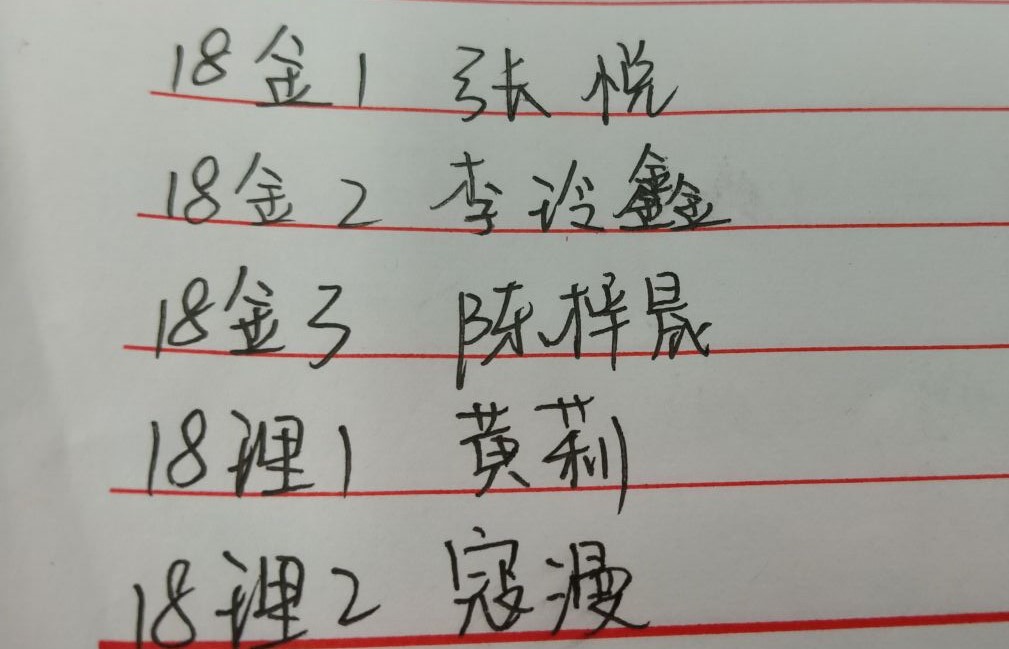 18金1 张悦
18金2 李泠鑫
18金3 陈梓晟
18理1 黄莉
18理2 寇漫